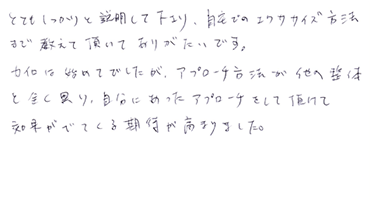 とてもしっかりと説明して下さり、自宅でのエクササイズ方法
まで教えて頂いてありがたいです。
カイロは始めてでしたが、アプローチ方法が他の整体
と全く異り、自分にあったアプローチをして頂けて
効果がでてくる期待が高まりました。